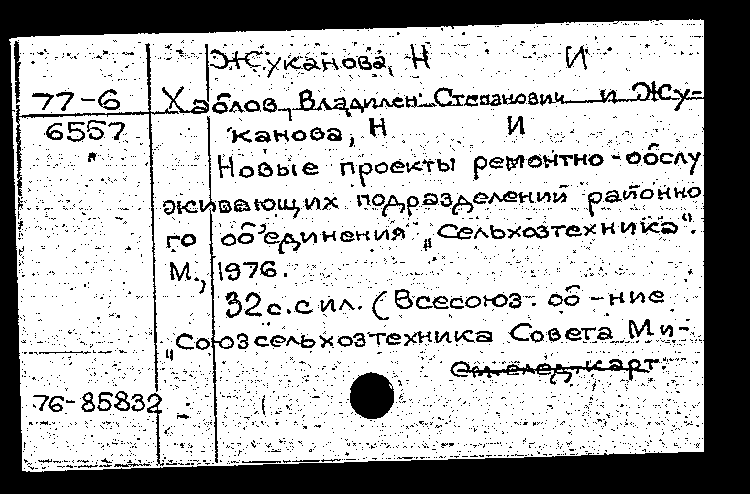 Жуканова, Н И
77-6 Хаблов, Владилен Степанович и Жу-
6557 канова, Н И
" Новые проекты ремонтно-обслу
живающих подразделений районно
го об'единения „Сельхозтехника".
М., 1976.
32 с. с ил. (Всесоюз. об-ние
„Союзсельхозтехника Совета Ми-
См. след. карт.
76-85832